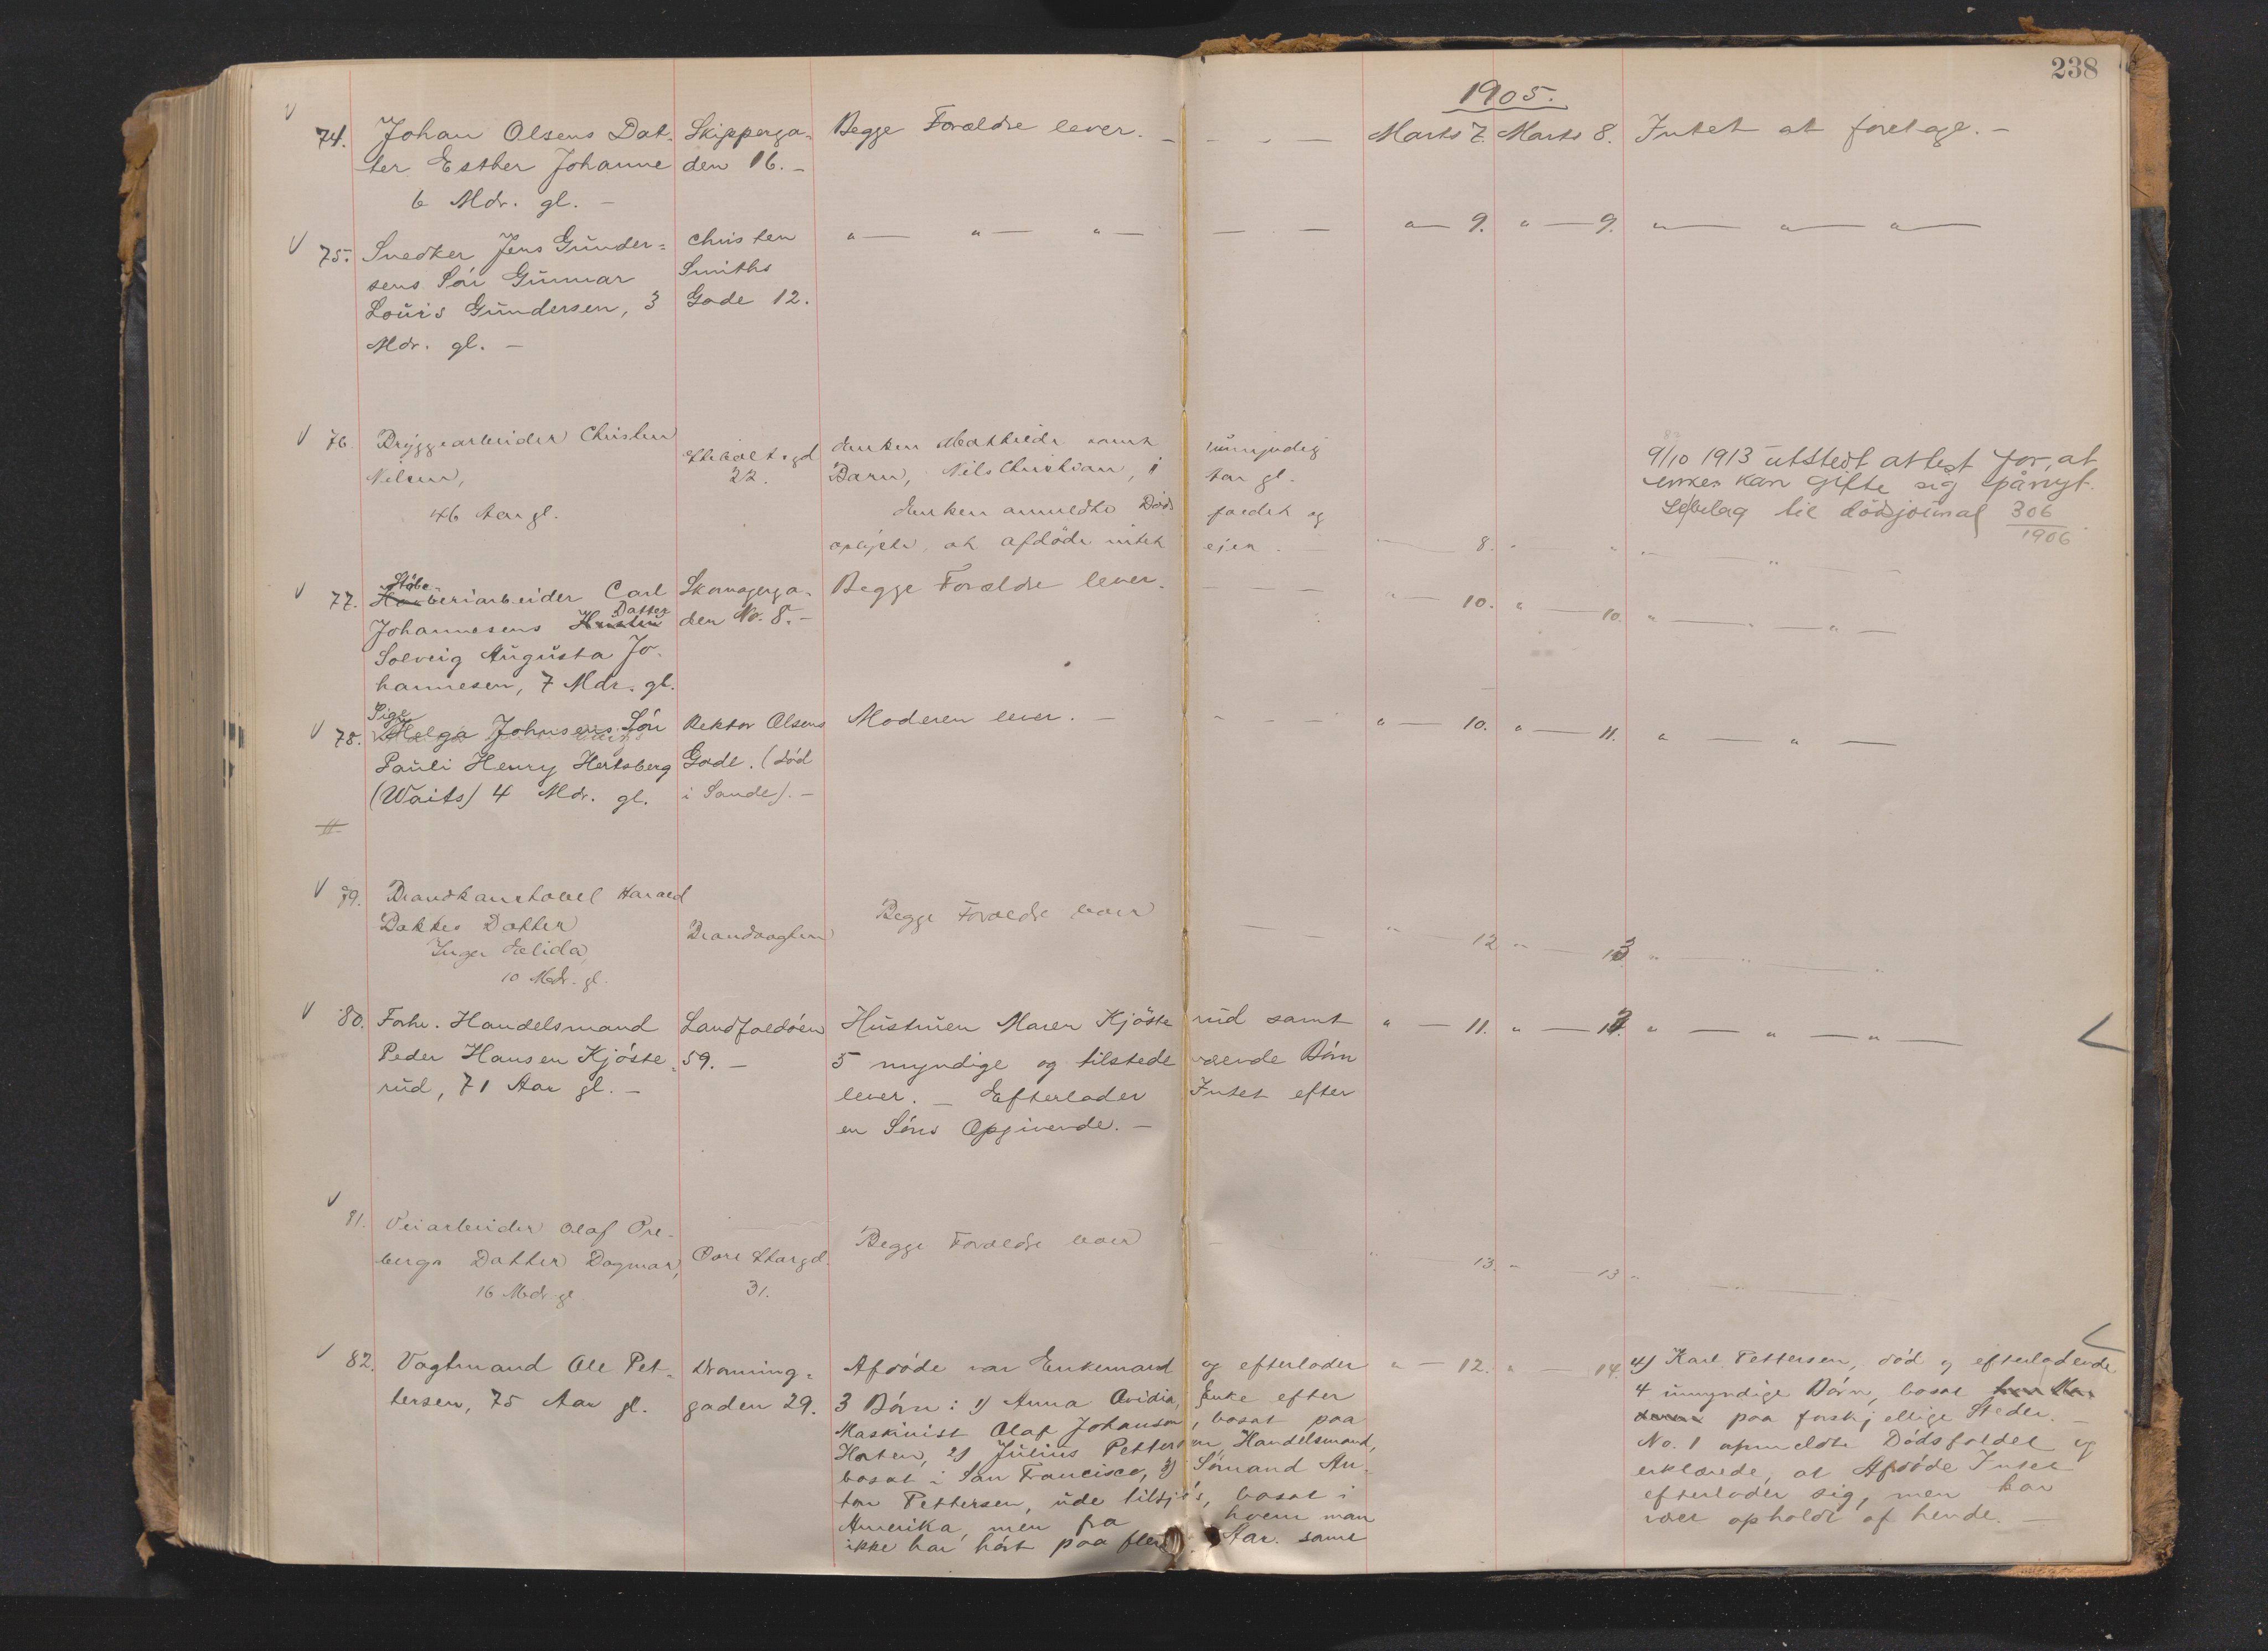 238
1905.
74. Johan Olsens Dat- Skipperga- Begge Forældre lever. - - - - Marts 7. Marts 8. Intet at foretage. -
ter Esther Johanne den 16. -
6 Mdr. gl. -
75. Snedker Jens Gunder= Christen " — " — " — — — " — 9. " — 9. " — " — " —
sens Søn Gunnar Smiths
Louis Gundersen, 3 Gade 12.
Mdr. gl. -
76. Bryggearbeider Christen Enken Mathilde samt umyndig
Nilsen, 22. Barn, Nils Christian, Aar gl.
46 Aar gl. Enken anmeldte Døds faldet og
oplyste, at afdøde intet ejer. — 8. " " — " —
9/10 1913 utstedt attest for, at
enken kan gifte sig pånyt.
Se bilag til dödsjournal 306
1906
77. Støbe-
beriarbeider Carl Skomagerga- Begge Forældre lever. - — — " — 10. " — 10. " — " — " —
Datter
Johannesens Hustru den No. 8. -
Solveig Augusta Jo-
hannesen, 7 Mdr. gl.
Pige
78. Helga Johnsens Søn Rektor Olsens Moderen lever. - - - - " — 10. " — 11. " — " —
Pauli Henry Hertsberg Gade. (død
(Waits) 4 Mdr. gl. i Sande). -
79. Brandkonstabel Harald
Bakkes Datter Brandvagten Begge Forældre lever — — " — 12 " — 13 " — " — "
Inger Elida,
10 Mdr. gl.
80. Forhv. Handelsmand Landfaldøen Hustruen Maren Kjøsterud samt " — 11. " — " — " — " —
Peder Hansen Kjøste= 59. - 5 myndige og tilstedeværende Børn
rud, 71 Aar gl. - lever. - Efterlader Intet efter
en Søns Opgivende. -
81. Veiarbeider Olaf Ore-
bergs Datter Dagmar, Øvre Storgd. Begge Forældre lever " — 13. " — 13 " — " —
16 Mdr. gl. 31.
82. Vagtmand Ole Pet- Dronning= Afdøde var Enkemand og efterlader " — 12. " — 14.
tersen, 75 Aar gl. gaden 29. 3 Børn: 1) Anna Ovidia, Enke efter
Maskinist Olaf Johanson, bosat paa
Horten, 2) Julius Pettersen, Handelsmand,
bosat i San Francisco, 3) Sømand An-
ton Pettersen, ude tilsjøs, bosat i
Amerika, men fra hvem man
ikke har hørt paa flere Aar. samt
4) Karl Pettersen, død og efterladende
4 umyndige Børn, bosat
paa forskjellige Steder. -
No. 1 anmeldte Dødsfaldet og
erklærede, at Afdøde Intet
efterlader sig, men har
vært opholdt af hende. -